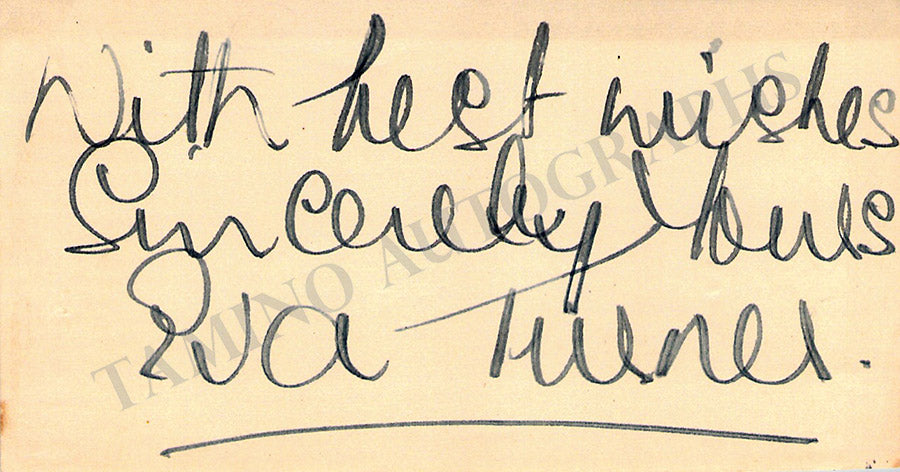 With best wishes
Sincerely Yours
Eva Turner.
TAMINO AUTOGRAPHS